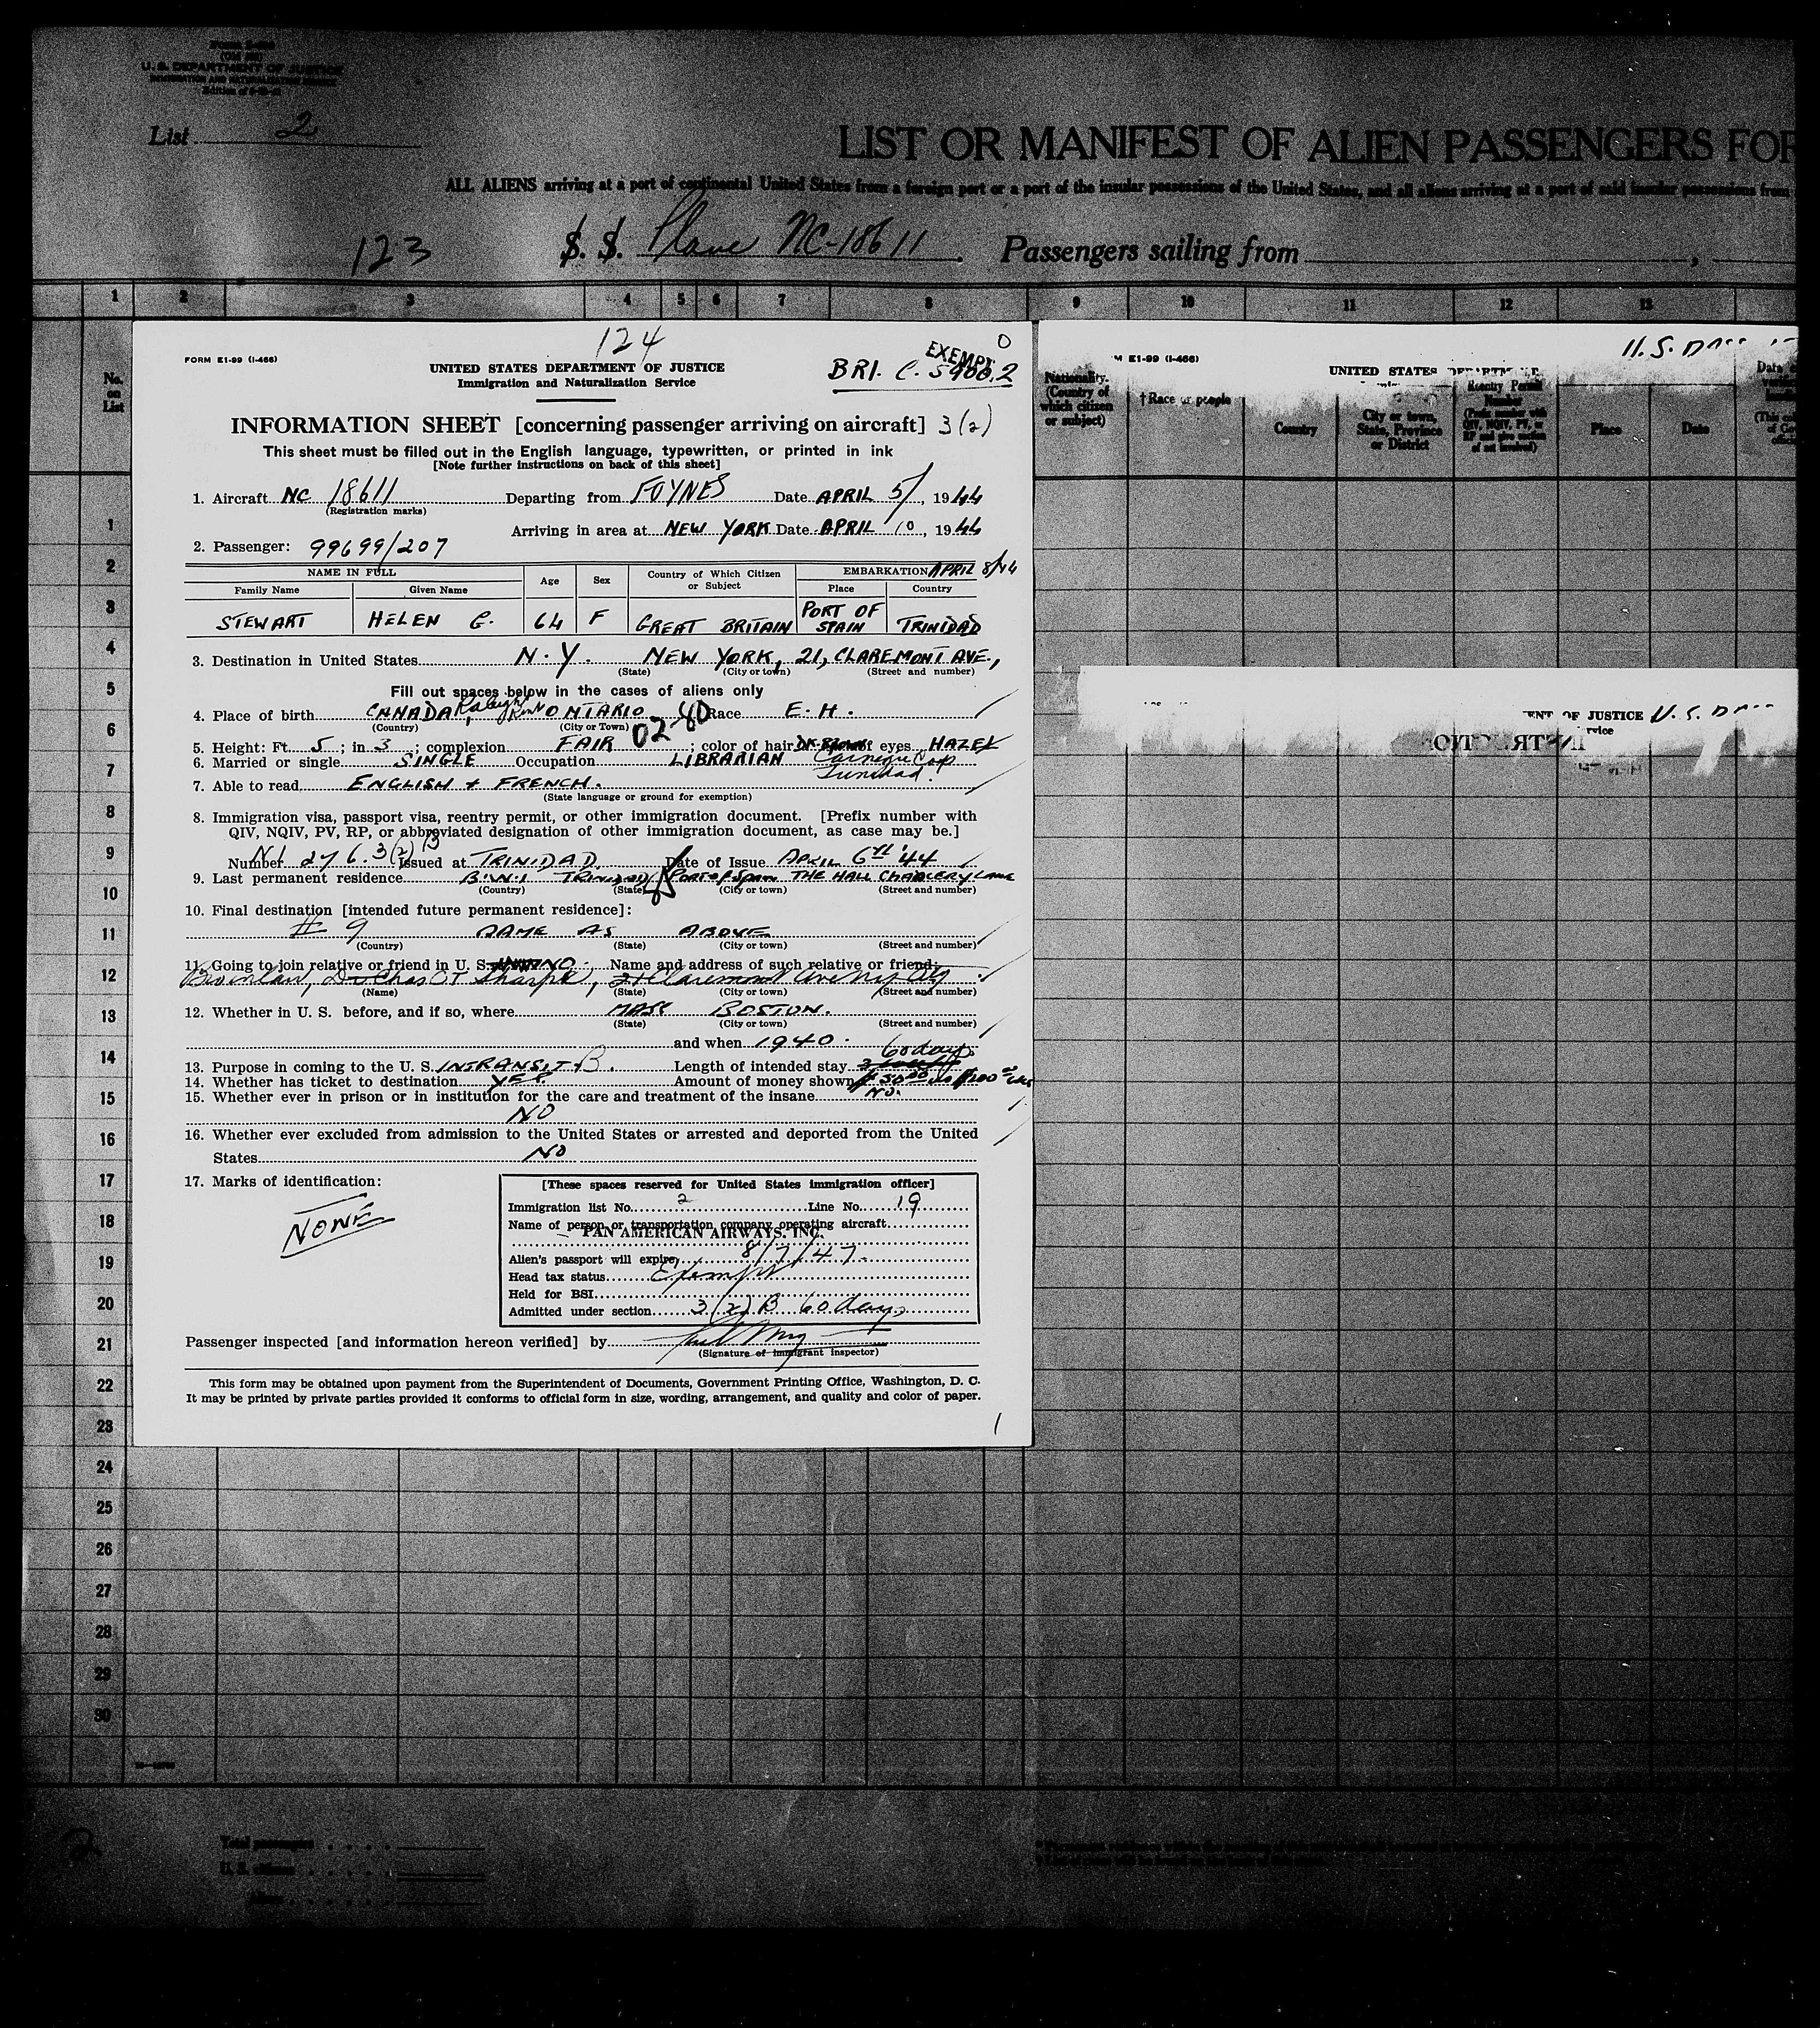 U. S. DEPARTMENT OF JUSTICE
IMMIGRATION AND NATURALIZATION SERVICE
List 2
LIST OR MANIFEST OF ALIEN PASSENGERS FOR
ALL ALIENS arriving at a port of continental United States from a foreign port or a port of the insular possessions of the United States, and all aliens arriving at a port of said insular possessions from
123 S. S. Plane NC-18611 . Passengers sailing from
1 2 3 4 5 6 7 8 9 10 11 12 13
No. on List
124
FORM E1-99 (I-466)
UNITED STATES DEPARTMENT OF JUSTICE
Immigration and Naturalization Service
EXEMPT
BRI. C. 5900.2
INFORMATION SHEET [concerning passenger arriving on aircraft] 3(2)
This sheet must be filled out in the English language, typewritten, or printed in ink
[Note further instructions on back of this sheet]
1. Aircraft NC 18611 Departing from FOYNES Date APRIL 5/, 1944
(Registration marks)
Arriving in area at NEW YORK Date APRIL 10, 1944
2. Passenger: 99699/207
NAME IN FULL Age Sex Country of Which Citizen or Subject EMBARKATION APRIL 8/44
Family Name Given Name Place Country
STEWART HELEN G. 64 F GREAT BRITAIN PORT OF SPAIN TRINIDAD
3. Destination in United States N.Y. NEW YORK, 21, CLAREMONT AVE.,
(State) (City or town) (Street and number)
Fill out spaces below in the cases of aliens only
4. Place of birth CANADA, Raleigh Kent ONTARIO Race E.H.
(Country) (City or Town) 02-40
5. Height: Ft. 5; in 3; complexion FAIR; color of hair DK BROWN of eyes HAZEL
6. Married or single SINGLE Occupation LIBRARIAN Carnegie Corp Trinidad.
7. Able to read ENGLISH + FRENCH.
(State language or ground for exemption)
8. Immigration visa, passport visa, reentry permit, or other immigration document. [Prefix number with
QIV, NQIV, PV, RP, or abbreviated designation of other immigration document, as case may be.]
Number 276. 3(2) B Issued at TRINIDAD Date of Issue APRIL 6TH '44
9. Last permanent residence B.W.I TRINIDAD PORT OF SPAIN THE HALL CHANCERY LANE
(Country) (State) (City or town) (Street and number)
10. Final destination [intended future permanent residence]:
# 9 SAME AS ABOVE
(Country) (State) (City or town) (Street and number)
11. Going to join relative or friend in U. S. NO. Name and address of such relative or friend:
Bro in law, Dr Chas CT Sharpe, 21 Claremont Ave Ny City
(Name) (State) (City or town) (Street and number)
12. Whether in U. S. before, and if so, where MASS BOSTON.
(State) (City or town) (Street and number)
and when 1940.
60 days
13. Purpose in coming to the U. S. INTRANSIT B. Length of intended stay
14. Whether has ticket to destination YES. Amount of money shown
15. Whether ever in prison or in institution for the care and treatment of the insane NO.
NO
16. Whether ever excluded from admission to the United States or arrested and deported from the United
States NO
17. Marks of identification:
NONE
[These spaces reserved for United States immigration officer]
Immigration list No. 2 Line No. 19
Name of person or transportation company operating aircraft
PAN AMERICAN AIRWAYS, INC.
Alien's passport will expire 8/7/47.
Head tax status Exempt
Held for BSI
Admitted under section 3(2) B 60 days
Passenger inspected [and information hereon verified] by
(Signature of immigrant inspector)
This form may be obtained upon payment from the Superintendent of Documents, Government Printing Office, Washington, D. C.
It may be printed by private parties provided it conforms to official form in size, wording, arrangement, and quality and color of paper.
1
M E1-99 (I-466)
UNITED STATES
Nationality. (Country of which citizen or subject)
† Race or people
Country
City or town, State, Province or District
Reentry Permit Number
Place
Date
ENT OF JUSTICE
rvice
1
2
3
4
5
6
7
8
9
10
11
12
13
14
15
16
17
18
19
20
21
22
23
24
25
26
27
28
29
30
2
Total passengers
U. S. citizens
Aliens